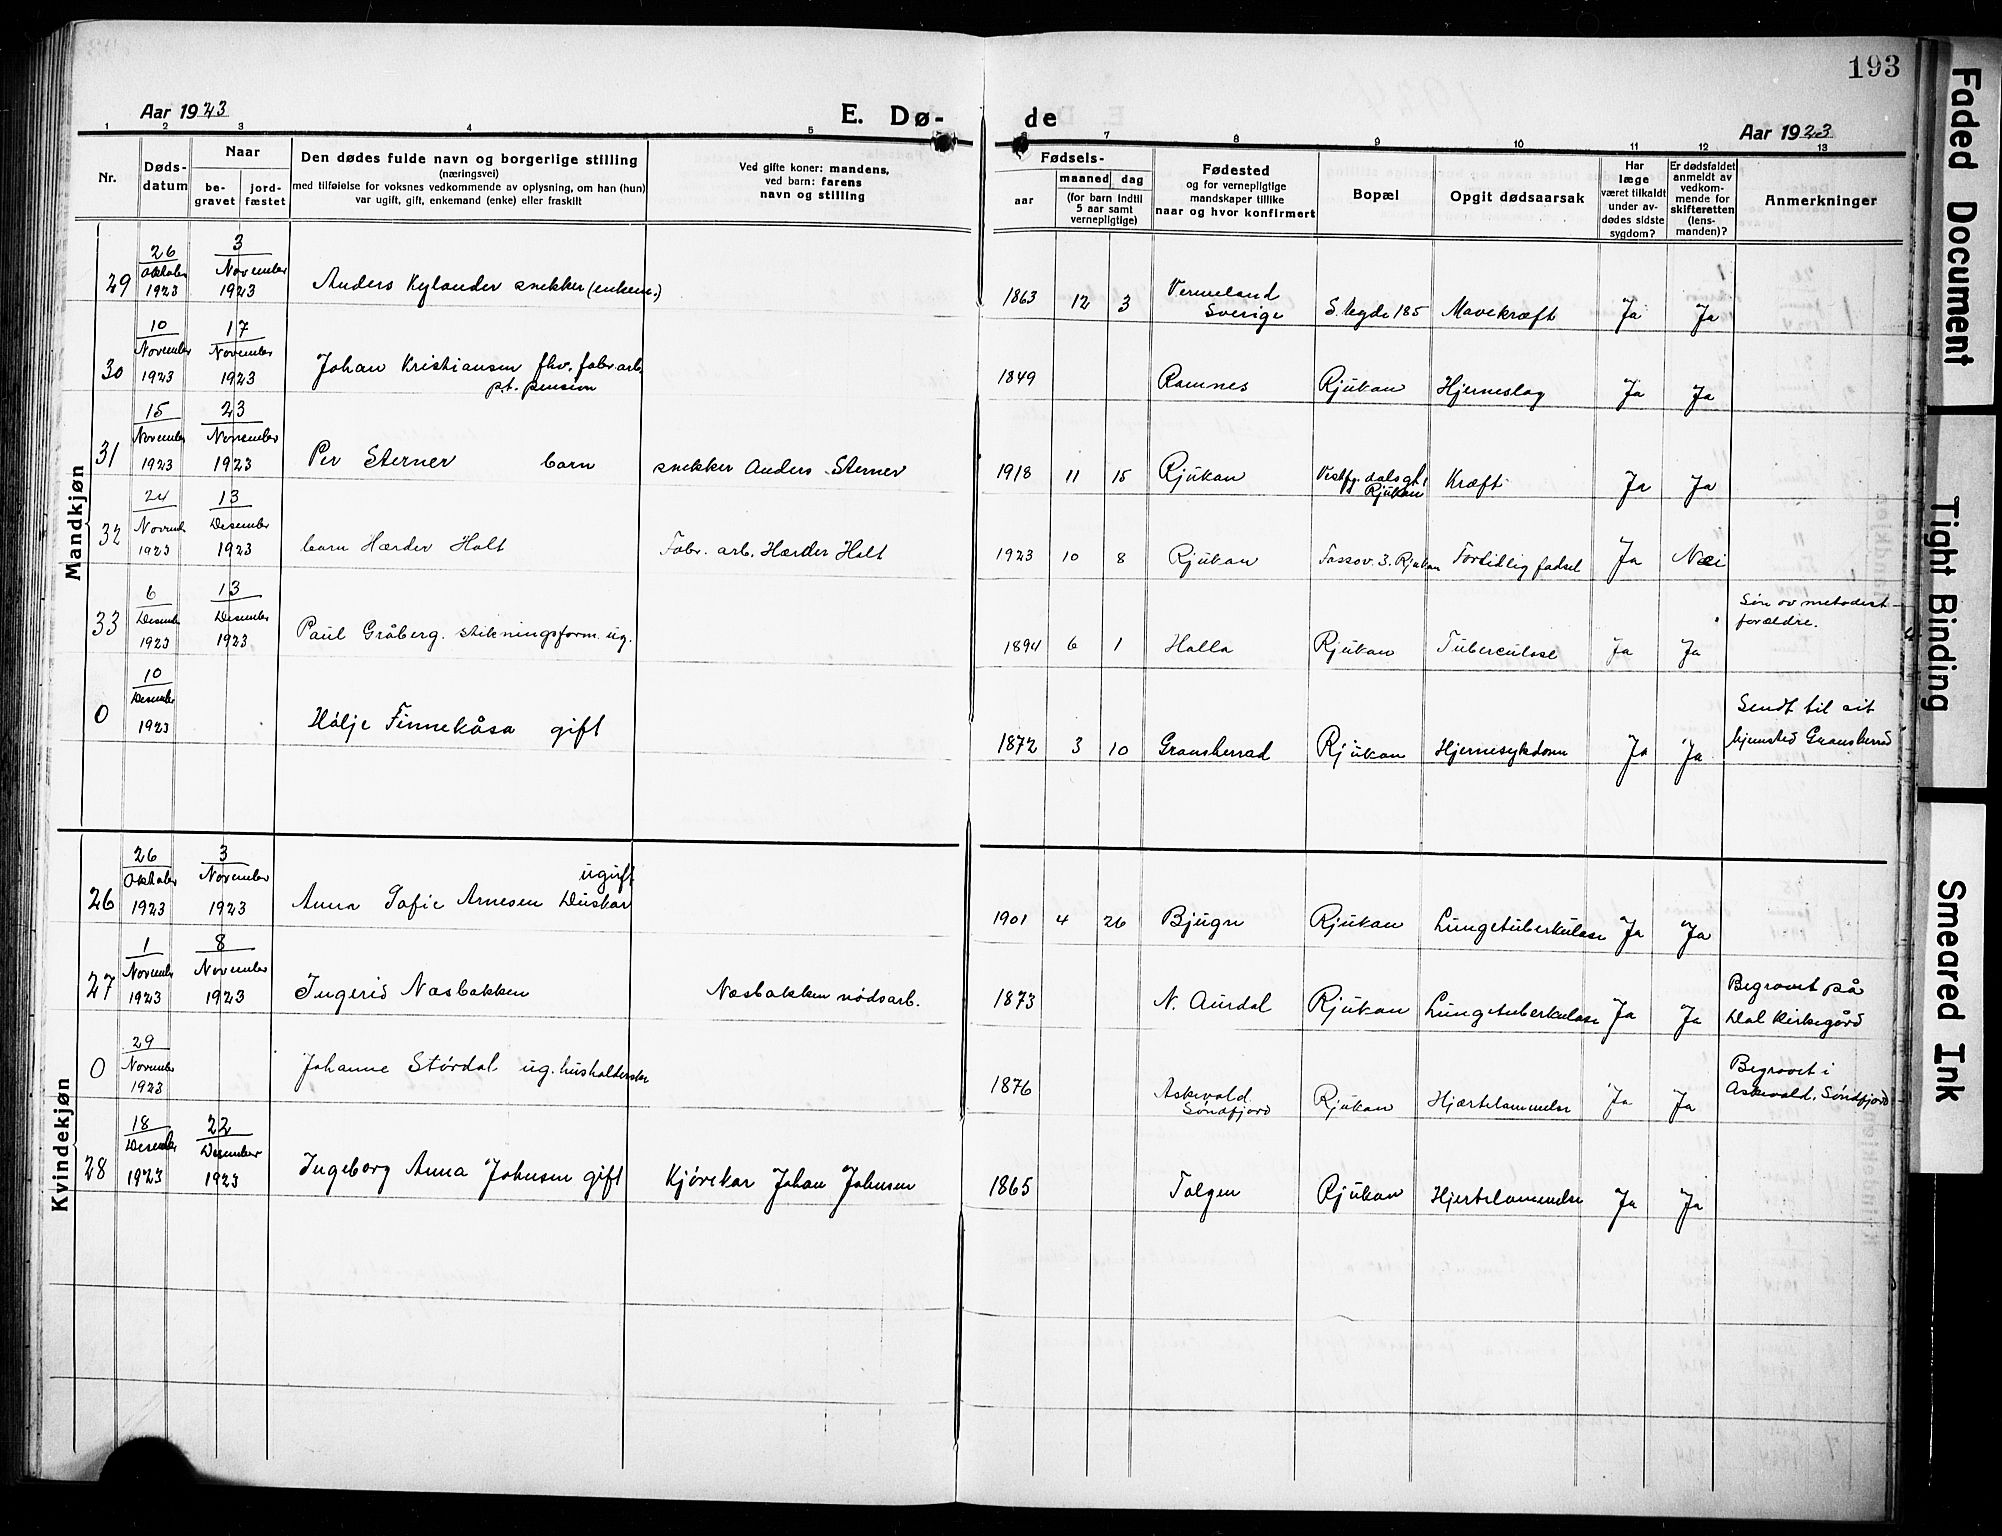 193
Aar 1923
E. Dø-
de
Aar 1923
1 2 3 4 5 6 7 8 9 10 11 12 13
Nr.
Døds-
datum
Naar
be-
gravet
jord-
fæstet
Den dødes fulde navn og borgerlige stilling
(næringsvei)
med tilføielse for voksnes vedkommende av oplysning, om han (hun)
var ugift, gift, enkemand (enke) eller fraskilt
Ved gifte koner: mandens,
ved barn: farens
navn og stilling
Fødsels-
aar
maaned dag
(for barn indtil
5 aar samt
vernepligtige)
Fødested
og for vernepligtige
mandskaper tillike
naar og hvor konfirmert
Bopæl
Opgit dødsaarsak
Har
læge
været tilkaldt
under av-
dødes sidste
sygdom?
Er dødsfaldet
anmeldt av
vedkom-
mende for
skifteretten
(lens-
manden)?
Anmerkninger
Mandkjøn
29 26 Oktober 1923 3 November 1923 Anders Kylander snekker (enkem.) 1863 12 3 Vermeland Sverige S. legde 185 Mavekræft Ja Ja
30 10 November 1923 17 November 1923 Johan Kristiansen fhv. fabr. arb. pt. pension 1849 Ramnes Rjukan Hjerneslag Ja Ja
31 15 November 1923 23 November 1923 Per Sterner barn snekker Anders Sterner 1918 11 15 Rjukan Vestfj. dalsgt. 1 Rjukan Kræft Ja Ja
32 24 Novemb 1923 13 Desember 1923 barn Hærder Holt Fabr. arb. Hærder Holt 1923 10 8 Rjukan Tassov. 3. Rjukan Fortidlig fødsel Ja Nei
33 6 Desemb 1923 13 Desember 1923 Paul Gråberg. stikningsform. ug. 1894 6 1 Holla Rjukan Tuberculose Ja Ja Søn av metodist-
forældre.
0 10 Desember 1923 Hålje Finnekåsa gift 1872 3 10 Gransherrad Rjukan Hjernesykdom Ja Ja Sendt til sit
hjemsted Gransherrad
Kvindekjøn
26 26 Oktober 1923 3 November 1923 Anna Sofie Arnesen Duskar ugift 1901 4 26 Bjugn Rjukan Lungetuberkulose Ja Ja
27 1 November 1923 8 November 1923 Ingerid Næsbakken Næsbakken nødsarb. 1873 N. Aurdal Rjukan Lungetuberkulose Ja Ja Begravet på
Dal kirkegård
0 29 November 1923 Johanne Størdal ug. husholderske 1876 Askevold. Søndfjord Rjukan Hjærtelammelse Ja Ja Begravet i
Askevold, Søndfjord
28 18 Desember 1923 22 Desember 1923 Ingeborg Anna Johnsen gift Kjørekar Johan Johnsen 1865 Tolgen Rjukan Hjertelammelse Ja Ja
Faded Document
Tight Binding
Smeared Ink